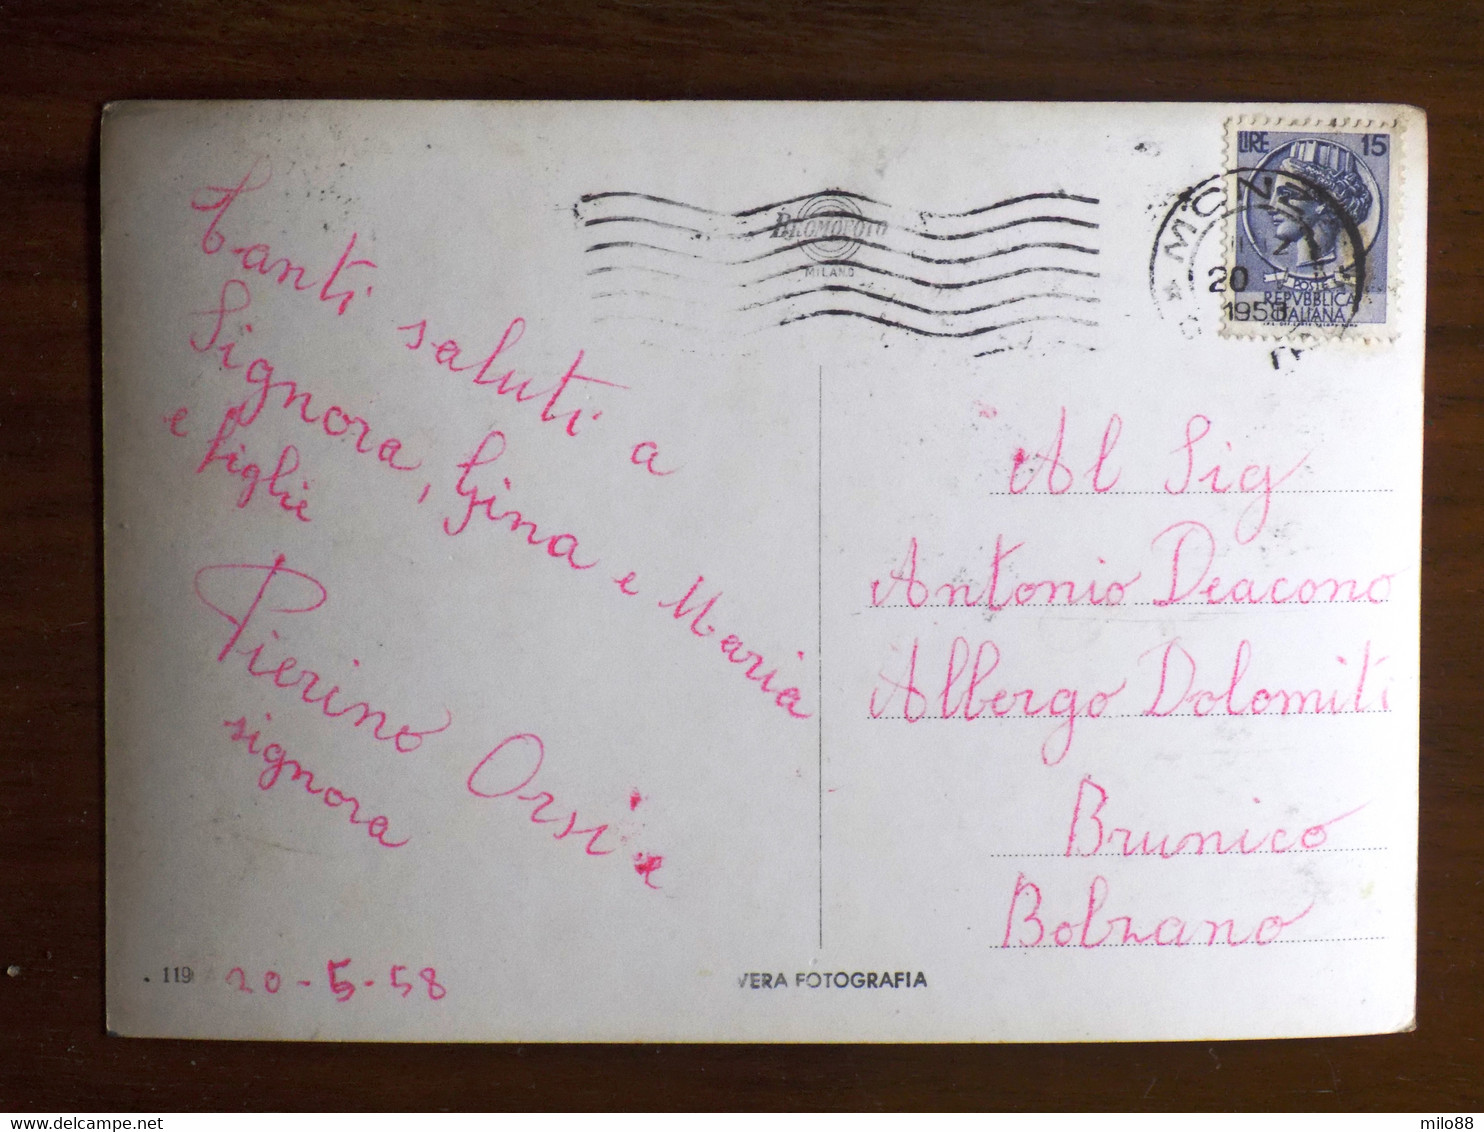 Tanti saluti a
Signora, Gina e Maria
e figlie
Pierino Orsi e
signora
20-5-58
119
VERA FOTOGRAFIA
BROMOFOTO
MILANO
MONZA
20
1958
LIRE 15
POSTE
REPVBBLICA
ITALIANA
Al Sig
Antonio Deacono
Albergo Dolomiti
Brunico
Bolzano
milo88